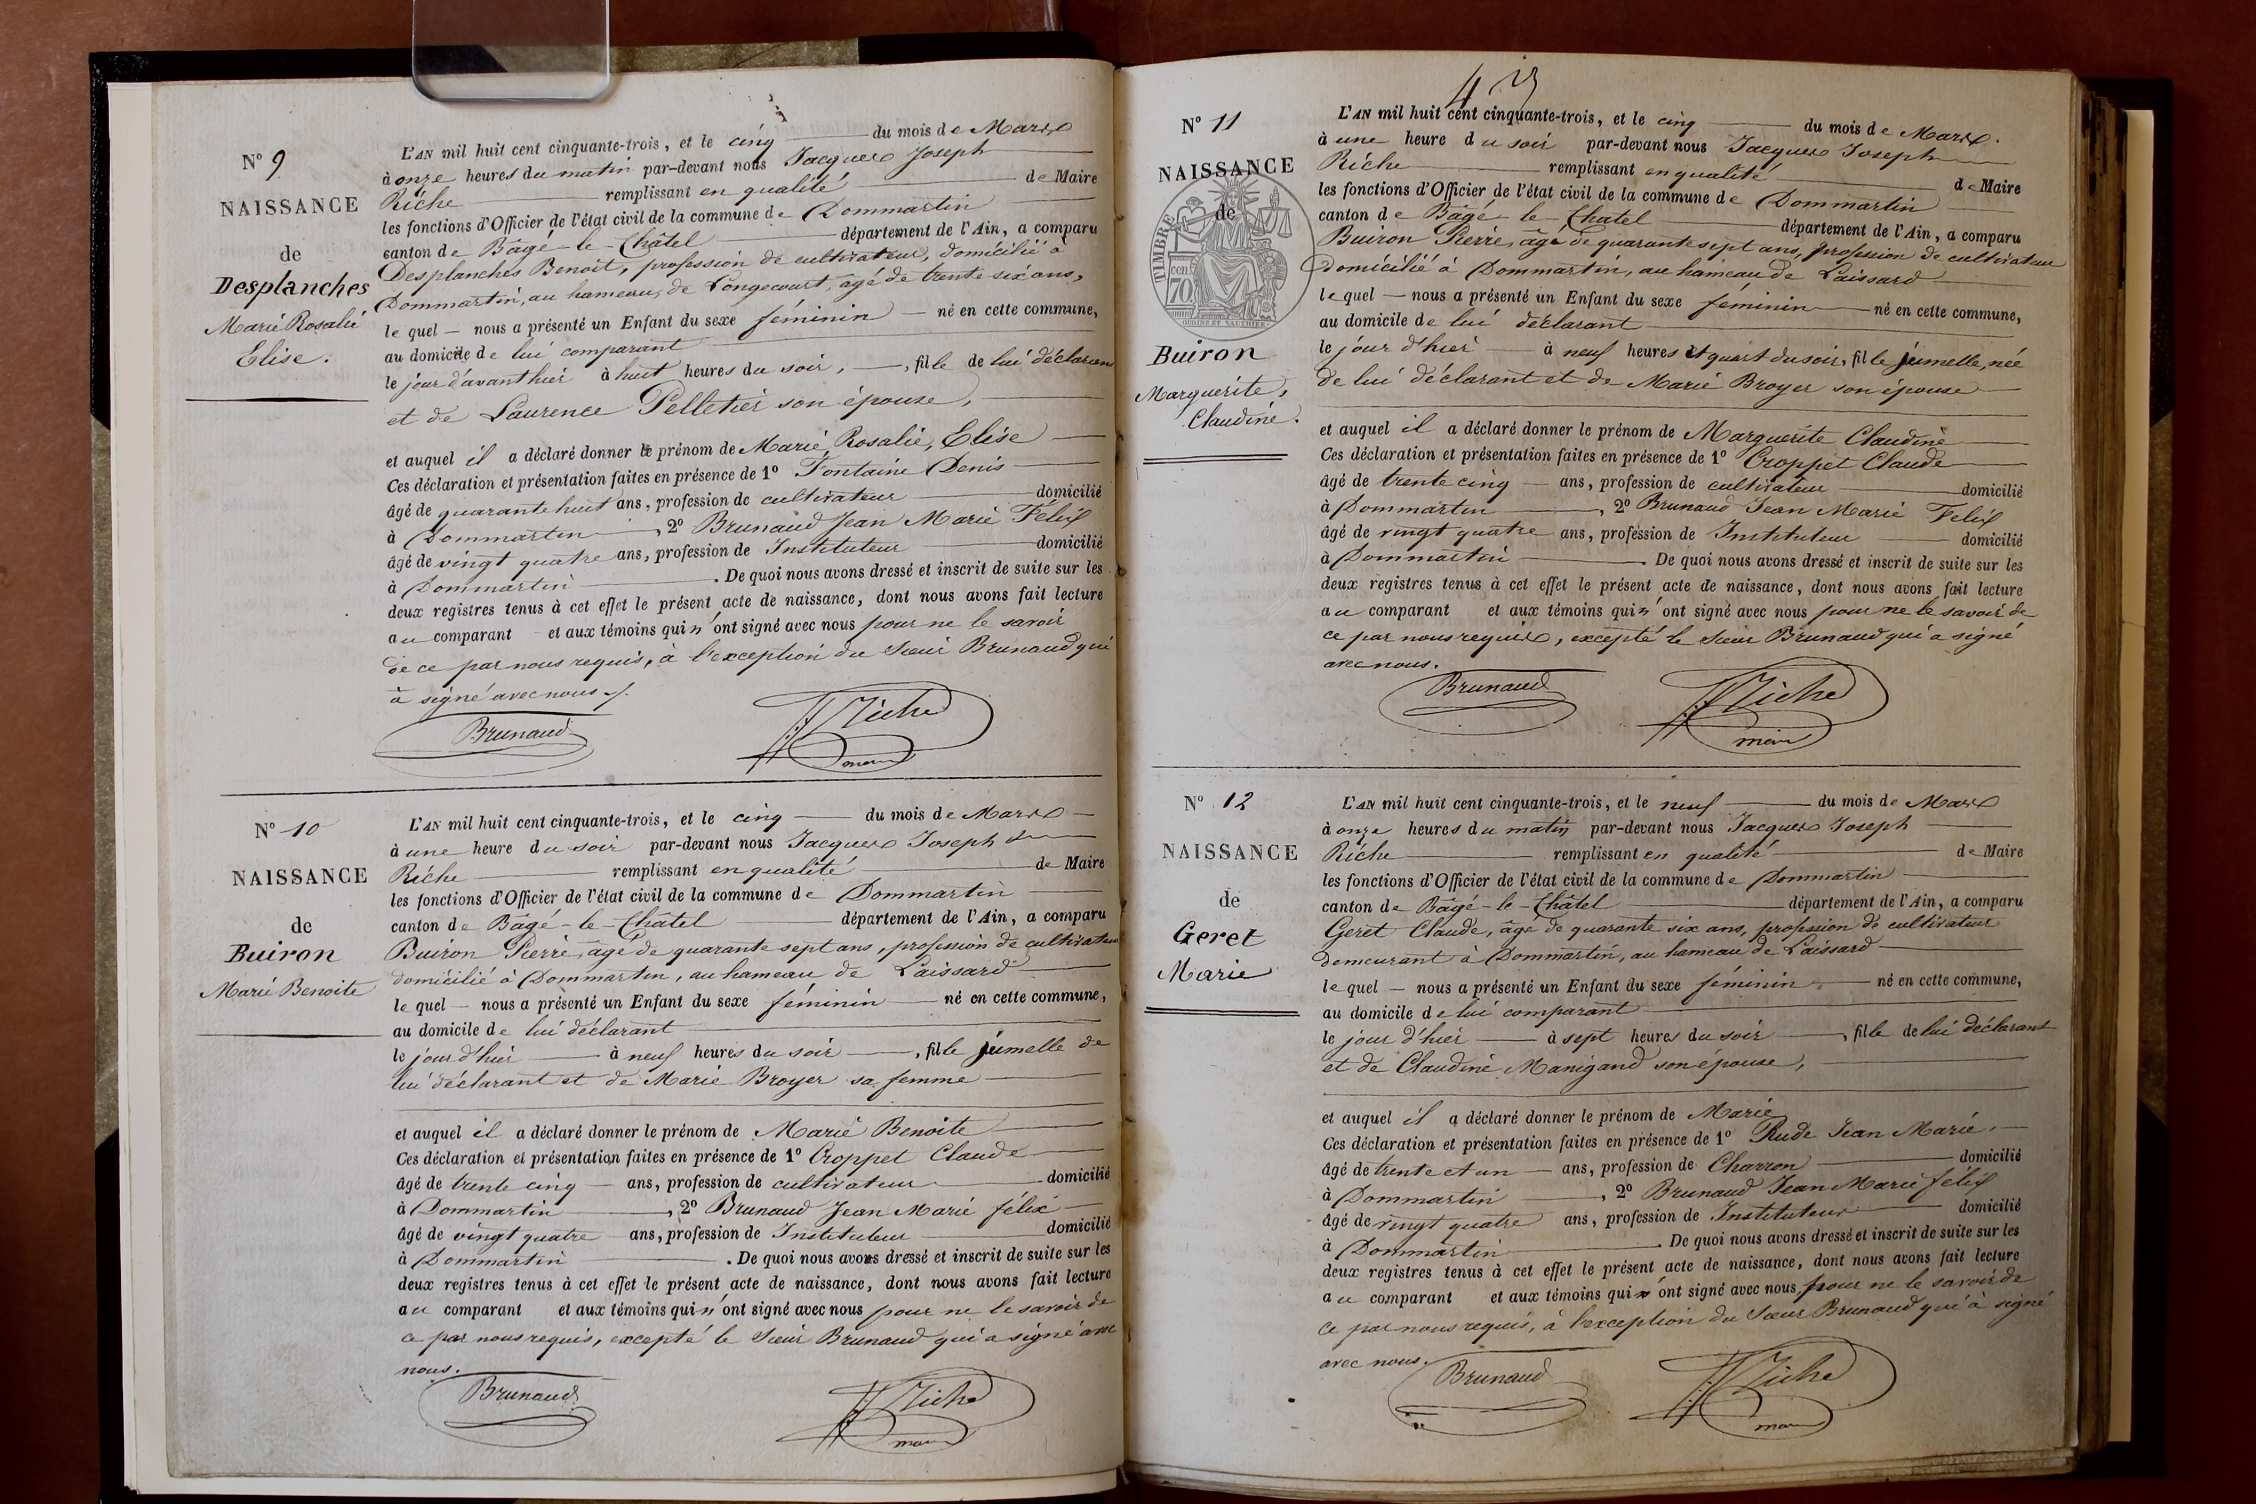 N° 9
NAISSANCE
de
Desplanches
Marie Rosalie
Elise.
L'AN mil huit cent cinquante-trois, et le cinq du mois de Mars
à onze heures du matin par-devant nous Jacques Joseph
Riche remplissant en qualité de Maire
les fonctions d'Officier de l'état civil de la commune de Dommartin
canton de Bâgé-le-Châtel département de l'Ain, a comparu
Desplanches Benoit, profession de cultivateur, domicilié à
Dommartin, au hameau de Longecourt, âgé de trente six ans,
le quel — nous a présenté un Enfant du sexe féminin — né en cette commune,
au domicile de lui comparant
le jour d'avant hier à huit heures du soir, —, fille de lui déclarant
et de Laurence Pelletier son épouse,
et auquel il a déclaré donner le prénom de Marie, Rosalie, Elise
Ces déclaration et présentation faites en présence de 1° Fontaine Denis
âgé de quarante huit ans, profession de cultivateur domicilié
à Dommartin, 2° Brunaud Jean Marie Félix
âgé de vingt quatre ans, profession de Instituteur domicilié
à Dommartin. De quoi nous avons dressé et inscrit de suite sur les
deux registres tenus à cet effet le présent acte de naissance, dont nous avons fait lecture
au comparant et aux témoins qui n'ont signé avec nous pour ne le savoir
de ce par nous requis, à l'exception du Sieur Brunaud qui
à signé avec nous
Brunaud JJRiche
maire
N° 10
NAISSANCE
de
Buiron
Marie Benoite
L'AN mil huit cent cinquante-trois, et le cinq du mois de Mars
à une heure du soir par-devant nous Jacques Joseph
Riche remplissant en qualité de Maire
les fonctions d'Officier de l'état civil de la commune de Dommartin
canton de Bâgé-le-Châtel département de l'Ain, a comparu
Buiron Pierre, âgé de quarante sept ans, profession de cultivateur
domicilié à Dommartin, au hameau de Laissard
le quel — nous a présenté un Enfant du sexe féminin — né en cette commune,
au domicile de lui déclarant
le jour d'hier à neuf heures du soir —, fille jumelle de
lui déclarant et de Marie Broyer sa femme
et auquel il a déclaré donner le prénom de Marie Benoite
Ces déclaration et présentation faites en présence de 1° Croppet Claude
âgé de trente cinq ans, profession de cultivateur domicilié
à Dommartin, 2° Brunaud Jean Marie félix
âgé de vingt quatre ans, profession de Instituteur domicilié
à Dommartin. De quoi nous avons dressé et inscrit de suite sur les
deux registres tenus à cet effet le présent acte de naissance, dont nous avons fait lecture
au comparant et aux témoins qui n'ont signé avec nous pour ne le savoir de
ce par nous requis, excepté le Sieur Brunaud qui a signé avec
nous.
Brunaud JJRiche
maire
43
N° 11
NAISSANCE
de
TIMBRE
cen
70
Buiron
Marguerite,
Claudine.
L'AN mil huit cent cinquante-trois, et le cinq du mois de Mars.
à une heure du soir par-devant nous Jacques Joseph
Riche remplissant en qualité de Maire
les fonctions d'Officier de l'état civil de la commune de Dommartin
canton de Bâgé-le-Chatel département de l'Ain, a comparu
Buiron Pierre, âgé de quarante sept ans, profession de cultivateur
domicilié à Dommartin, au hameau de Laissard
le quel — nous a présenté un Enfant du sexe féminin — né en cette commune,
au domicile de lui déclarant
le jour d'hier à neuf heures et quart du soir, fille jumelle, née
de lui déclarant et de Marie Broyer son épouse
et auquel il a déclaré donner le prénom de Marguerite Claudine
Ces déclaration et présentation faites en présence de 1° Croppet Claude
âgé de trente cinq ans, profession de cultivateur domicilié
à Dommartin, 2° Brunaud Jean Marie Félix
âgé de vingt quatre ans, profession de Instituteur domicilié
à Dommartin. De quoi nous avons dressé et inscrit de suite sur les
deux registres tenus à cet effet le présent acte de naissance, dont nous avons fait lecture
au comparant et aux témoins qui n'ont signé avec nous pour ne le savoir de
ce par nous requis, excepté le Sieur Brunaud qui a signé
avec nous.
Brunaud JJRiche
maire
N° 12
NAISSANCE
de
Geret
Marie
L'AN mil huit cent cinquante-trois, et le neuf du mois de Mars
à onze heures du matin par-devant nous Jacques Joseph
Riche remplissant en qualité de Maire
les fonctions d'Officier de l'état civil de la commune de Dommartin
canton de Bâgé-le-Châtel département de l'Ain, a comparu
Geret Claude, âgé de quarante six ans, profession de cultivateur
demeurant à Dommartin, au hameau de Laissard
le quel — nous a présenté un Enfant du sexe féminin — né en cette commune,
au domicile de lui comparant
le jour d'hier à sept heures du soir, fille de lui déclarant
et de Claudine Manigand son épouse,
et auquel il a déclaré donner le prénom de Marie
Ces déclaration et présentation faites en présence de 1° Rude Jean Marie,
âgé de trente et un ans, profession de Charron domicilié
à Dommartin, 2° Brunaud Jean Marie félix
âgé de vingt quatre ans, profession de Instituteur domicilié
à Dommartin. De quoi nous avons dressé et inscrit de suite sur les
deux registres tenus à cet effet le présent acte de naissance, dont nous avons fait lecture
au comparant et aux témoins qui n'ont signé avec nous pour ne le savoir de
ce par nous requis, à l'exception du Sieur Brunaud qui à signé
avec nous.
Brunaud JJRiche
maire